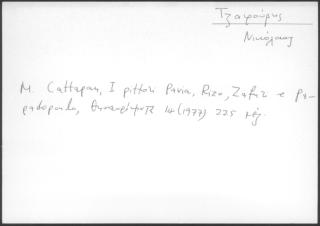 Τζαφούρης
Νικόλαος
M. Cattapan, I pittori Pavia, Rizo, Zafuri e Pa-
padopoulo, Θησαυρίσματα 14 (1977) 225